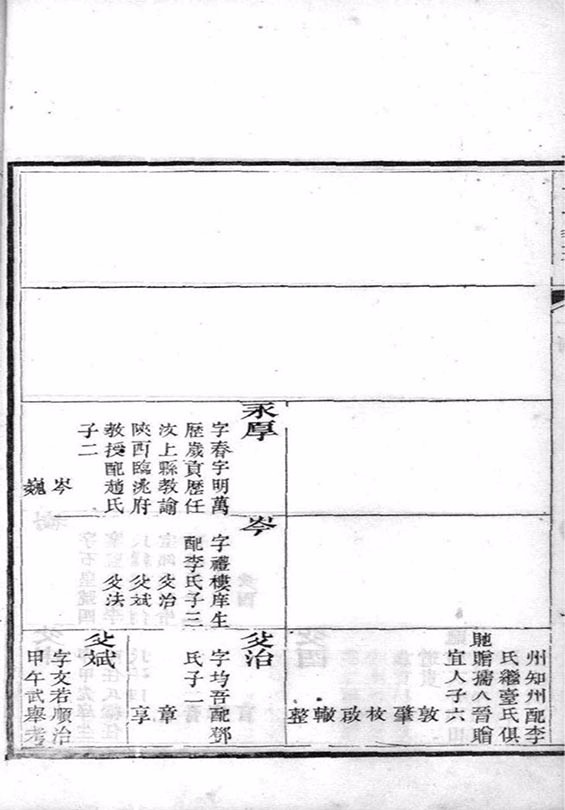 永厚
字春字明萬
歷歲貢歷任
汶上縣教諭
陝西臨洮府
教授配趙氏
子二
岑
巍
岑
字禮樓庠生
配李氏子三
㸚治
㸚斌
㸚法
州知州配李
氏繼臺氏俱
馳贈孺人晉贈
宜人子六
敦
肇
枚
啟
轍
整
㸚治
字均吾配鄧
氏子二
章
享
㸚斌
字文若順治
甲午武舉考